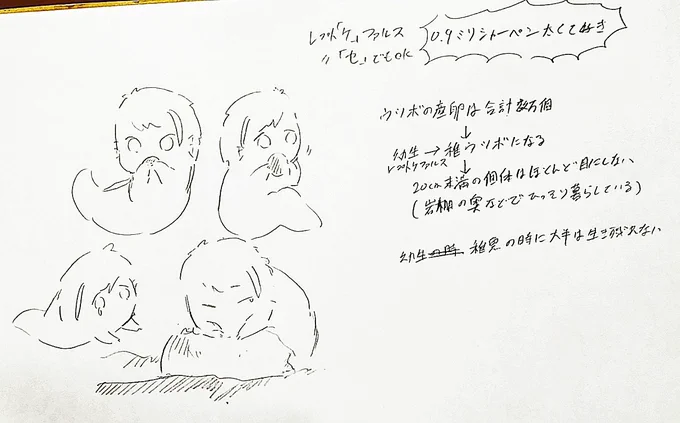 レプトケファルス
〃「セ」でもOK
0.9ミリシャーペン太くて好き
ウツボの産卵は合計数万個
↓
幼生→稚ウツボになる
レプトケファルス ↓
20cm未満の個体はほとんど目にしない
(岩棚の奥などでひっそり暮らしている)
幼生 稚魚の時に大半は生き残れない